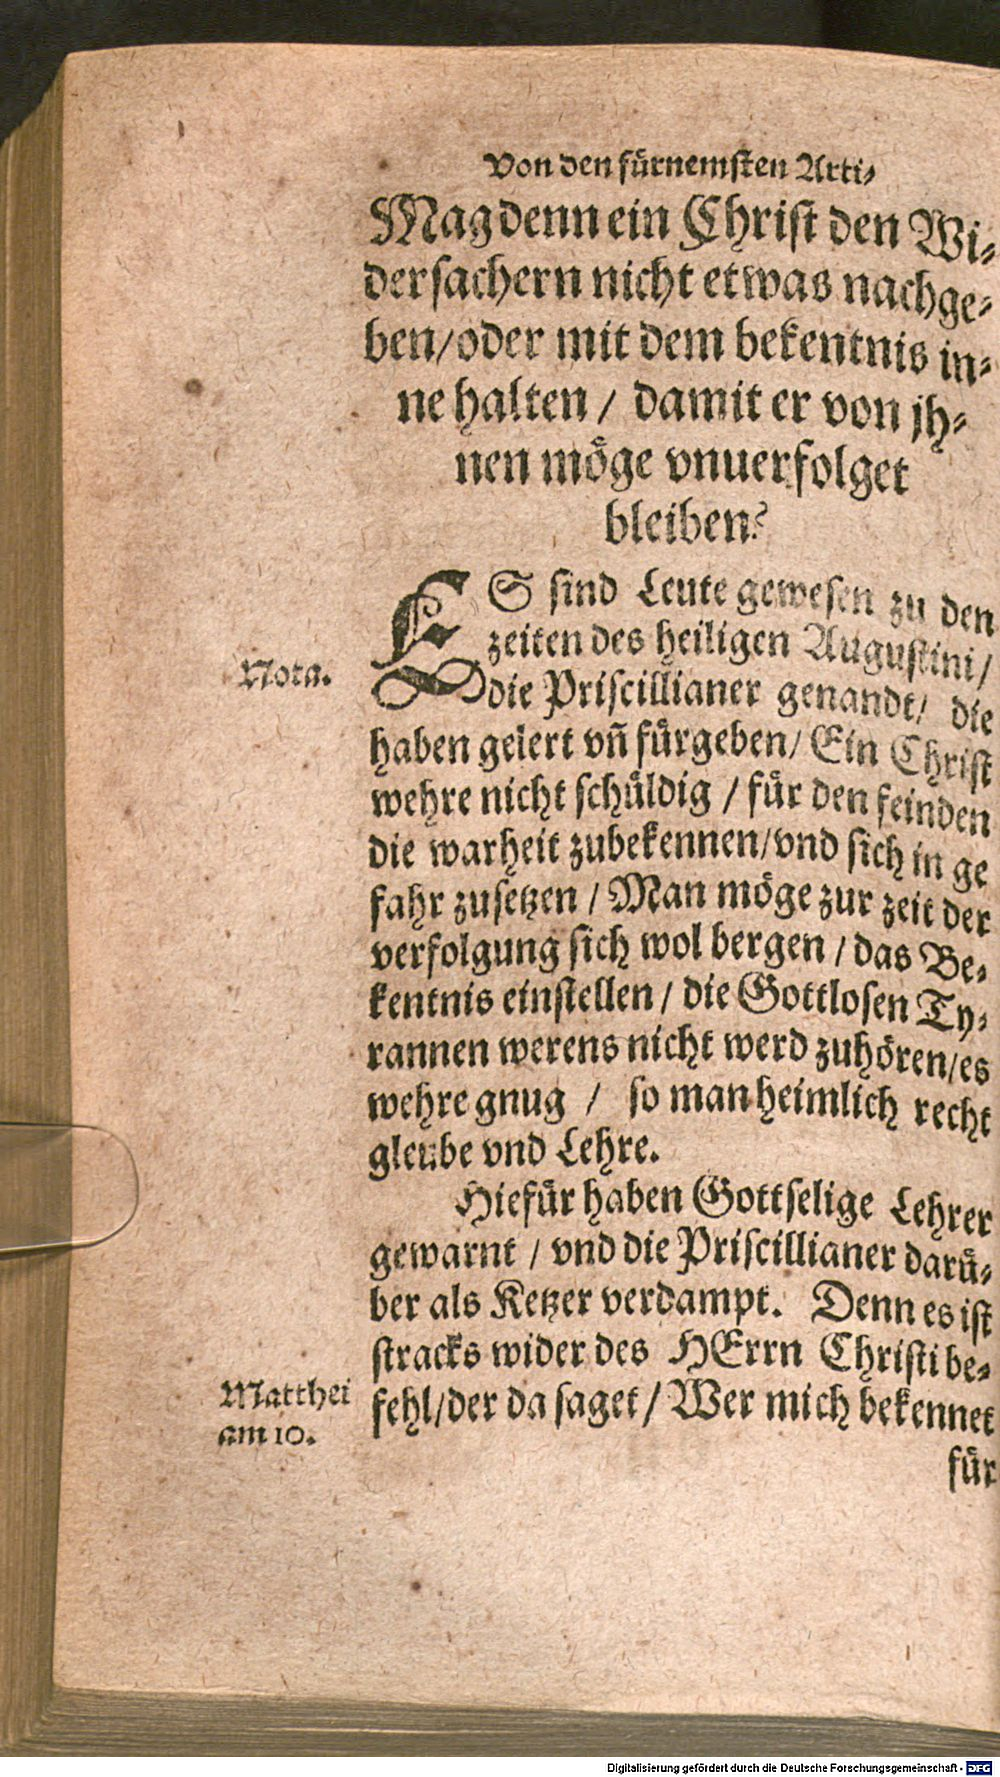 Von den fürnemsten Arti⸗
Mag denn ein Christ den Wi⸗
dersachern nicht etwas nachge⸗
ben/oder mit dem bekentnis in⸗
ne halten / damit er von jh⸗
nen möge vnuerfolget
bleiben?
ES sind Leute gewesen zu den
zeiten des heiligen Augustini/
Nota.
die Priscillianer genandt/ die
haben gelert vñ fürgeben/ Ein Christ
wehre nicht schüldig / für den feinden
die warheit zubekennen/vnd sich in ge
fahr zusetzen / Man möge zur zeit der
verfolgung sich wol bergen / das Be⸗
kentnis einstellen / die Gottlosen Ty⸗
rannen werens nicht werd zuhören/es
wehre gnug / so man heimlich recht
gleube vnd Lehre.
Hiefür haben Gottselige Lehrer
gewarnt / vnd die Priscillianer darü⸗
ber als Ketzer verdampt. Denn es ist
stracks wider des HErrn Christi be⸗
Matthei
am 10.
fehl/der da saget / Wer mich bekennet
für
Digitalisierung gefördert durch die Deutsche Forschungsgemeinschaft - DFG